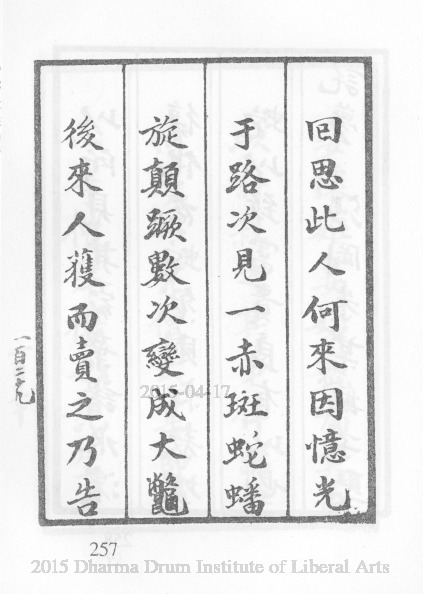 回思此人何來因憶光
于路次見一赤斑蛇蟠
旋顛蹶數次變成大鼈
後來人獲而賣之乃告
一百二十九
257
2015-04-17
2015 Dharma Drum Institute of Liberal Arts